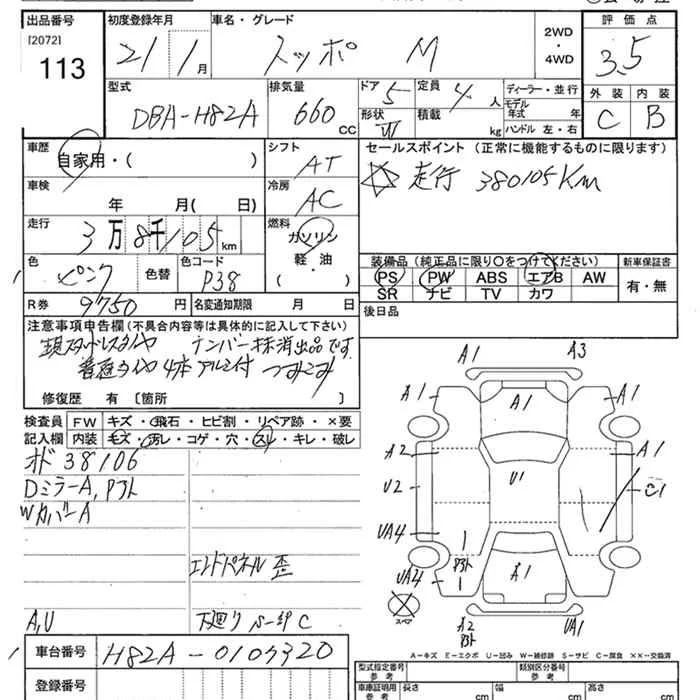 出品番号
[2072]
113
初度登録年月
21 / 1月
車名・グレード
スッポ M
2WD
・
4WD
評価点
3.5
外装 内装
C B
型式
DBA-H82A
排気量
660 cc
ドア 5
定員 4人
形状
積載 kg
ディーラー・並行
モデル年式 年
ハンドル 左・右
車歴
自家用・( )
シフト
AT
車検
年 月( 日)
冷房
AC
走行
3万8千105km
燃料
ガソリン
軽油
・
( )
色
ピンク
色替
色コード
P38
R券 9750円
名変通知期限 月 日
セールスポイント (正常に機能するものに限ります)
☆走行 380105Km
装備品(純正品に限り○をつけてください)
PS PW ABS エアB AW
SR ナビ TV カワ
新車保証書
有・無
後日品
注意事項申告欄(不具合内容等は具体的に記入して下さい)
現スタッドレスタイヤ ナンバー抹消出品です
普通タイヤ4本アルミ付 つみこみ
修復歴 有〔箇所 〕
検査員記入欄
FW キズ・飛石・ヒビ割・リペア跡・×要
内装 キズ・汚レ・コゲ・穴・スレ・キレ・破レ
オド 38106
Dミラー A, Pヌト
Wカバー A
エンドパネル 歪
A,U
下廻り C
A1 A3
A1 A1 A1
A2 A1
U2 U1 C1
UA4
UA4 A1
スペア
A2 UA1
A−キズ E−エクボ U−凹み W−補修跡 S−サビ C−腐食 ××−交換済
車台番号
H82A-0107320
登録番号
型式指定番号
参考
類別区分番号
参考
車庫証明用
参考
長さ cm
幅 cm
高さ cm